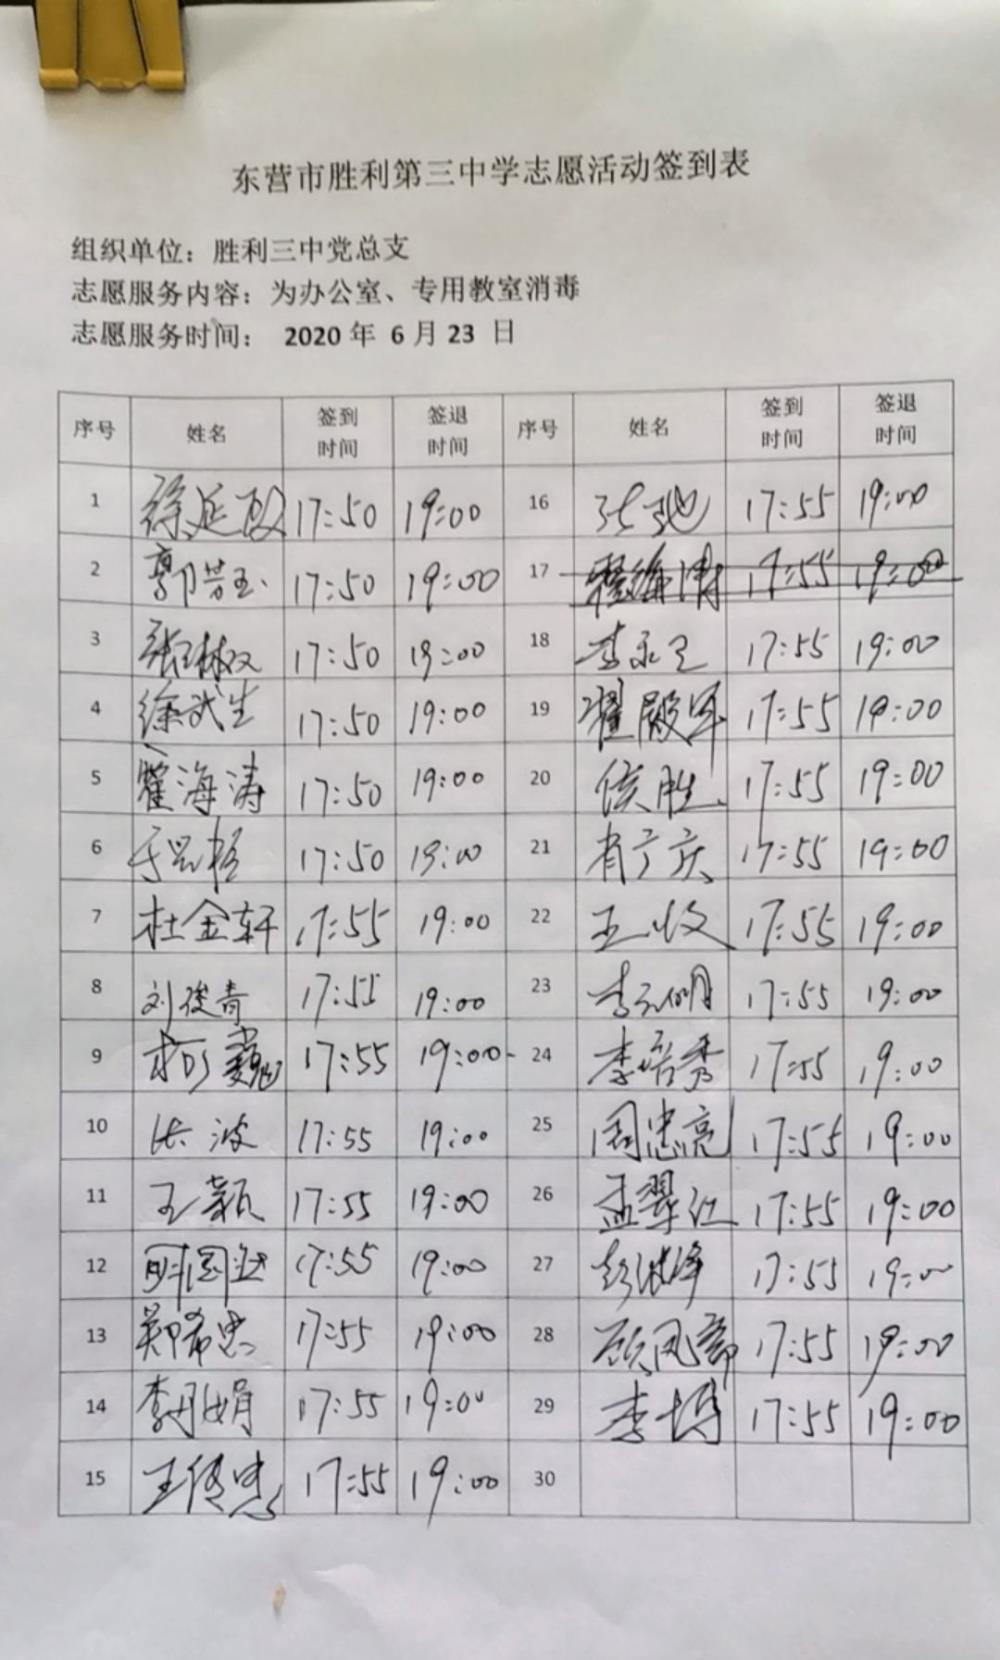 东营市胜利第三中学志愿活动签到表
组织单位：胜利三中党总支
志愿服务内容：为办公室、专用教室消毒
志愿服务时间： 2020 年 6 月 23 日
序号 姓名 签到时间 签退时间 序号 姓名 签到时间 签退时间
1 徐延 17:50 19:00 16 张弛 17:55 19:00
2 郭芳玉 17:50 19:00 17 17:55 19:00
3 17:50 19:00 18 李永卫 17:55 19:00
4 徐武生 17:50 19:00 19 翟殿军 17:55 19:00
5 霍海涛 17:50 19:00 20 侯胜 17:55 19:00
6 17:50 19:00 21 肖广庆 17:55 19:00
7 杜金轩 17:55 19:00 22 王收 17:55 19:00
8 刘俊青 17:55 19:00 23 李 明 17:55 19:00
9 柯巍 17:55 19:00 24 李培秀 17:55 19:00
10 张波 17:55 19:00 25 周忠亮 17:55 19:00
11 王颖 17:55 19:00 26 孟翠红 17:55 19:00
12 明国 17:55 19:00 27 彭洪峰 17:55 19:00
13 郑希忠 17:55 19:00 28 顾凤 17:55 19:00
14 李丹娟 17:55 19:00 29 李博 17:55 19:00
15 王传忠 17:55 19:00 30